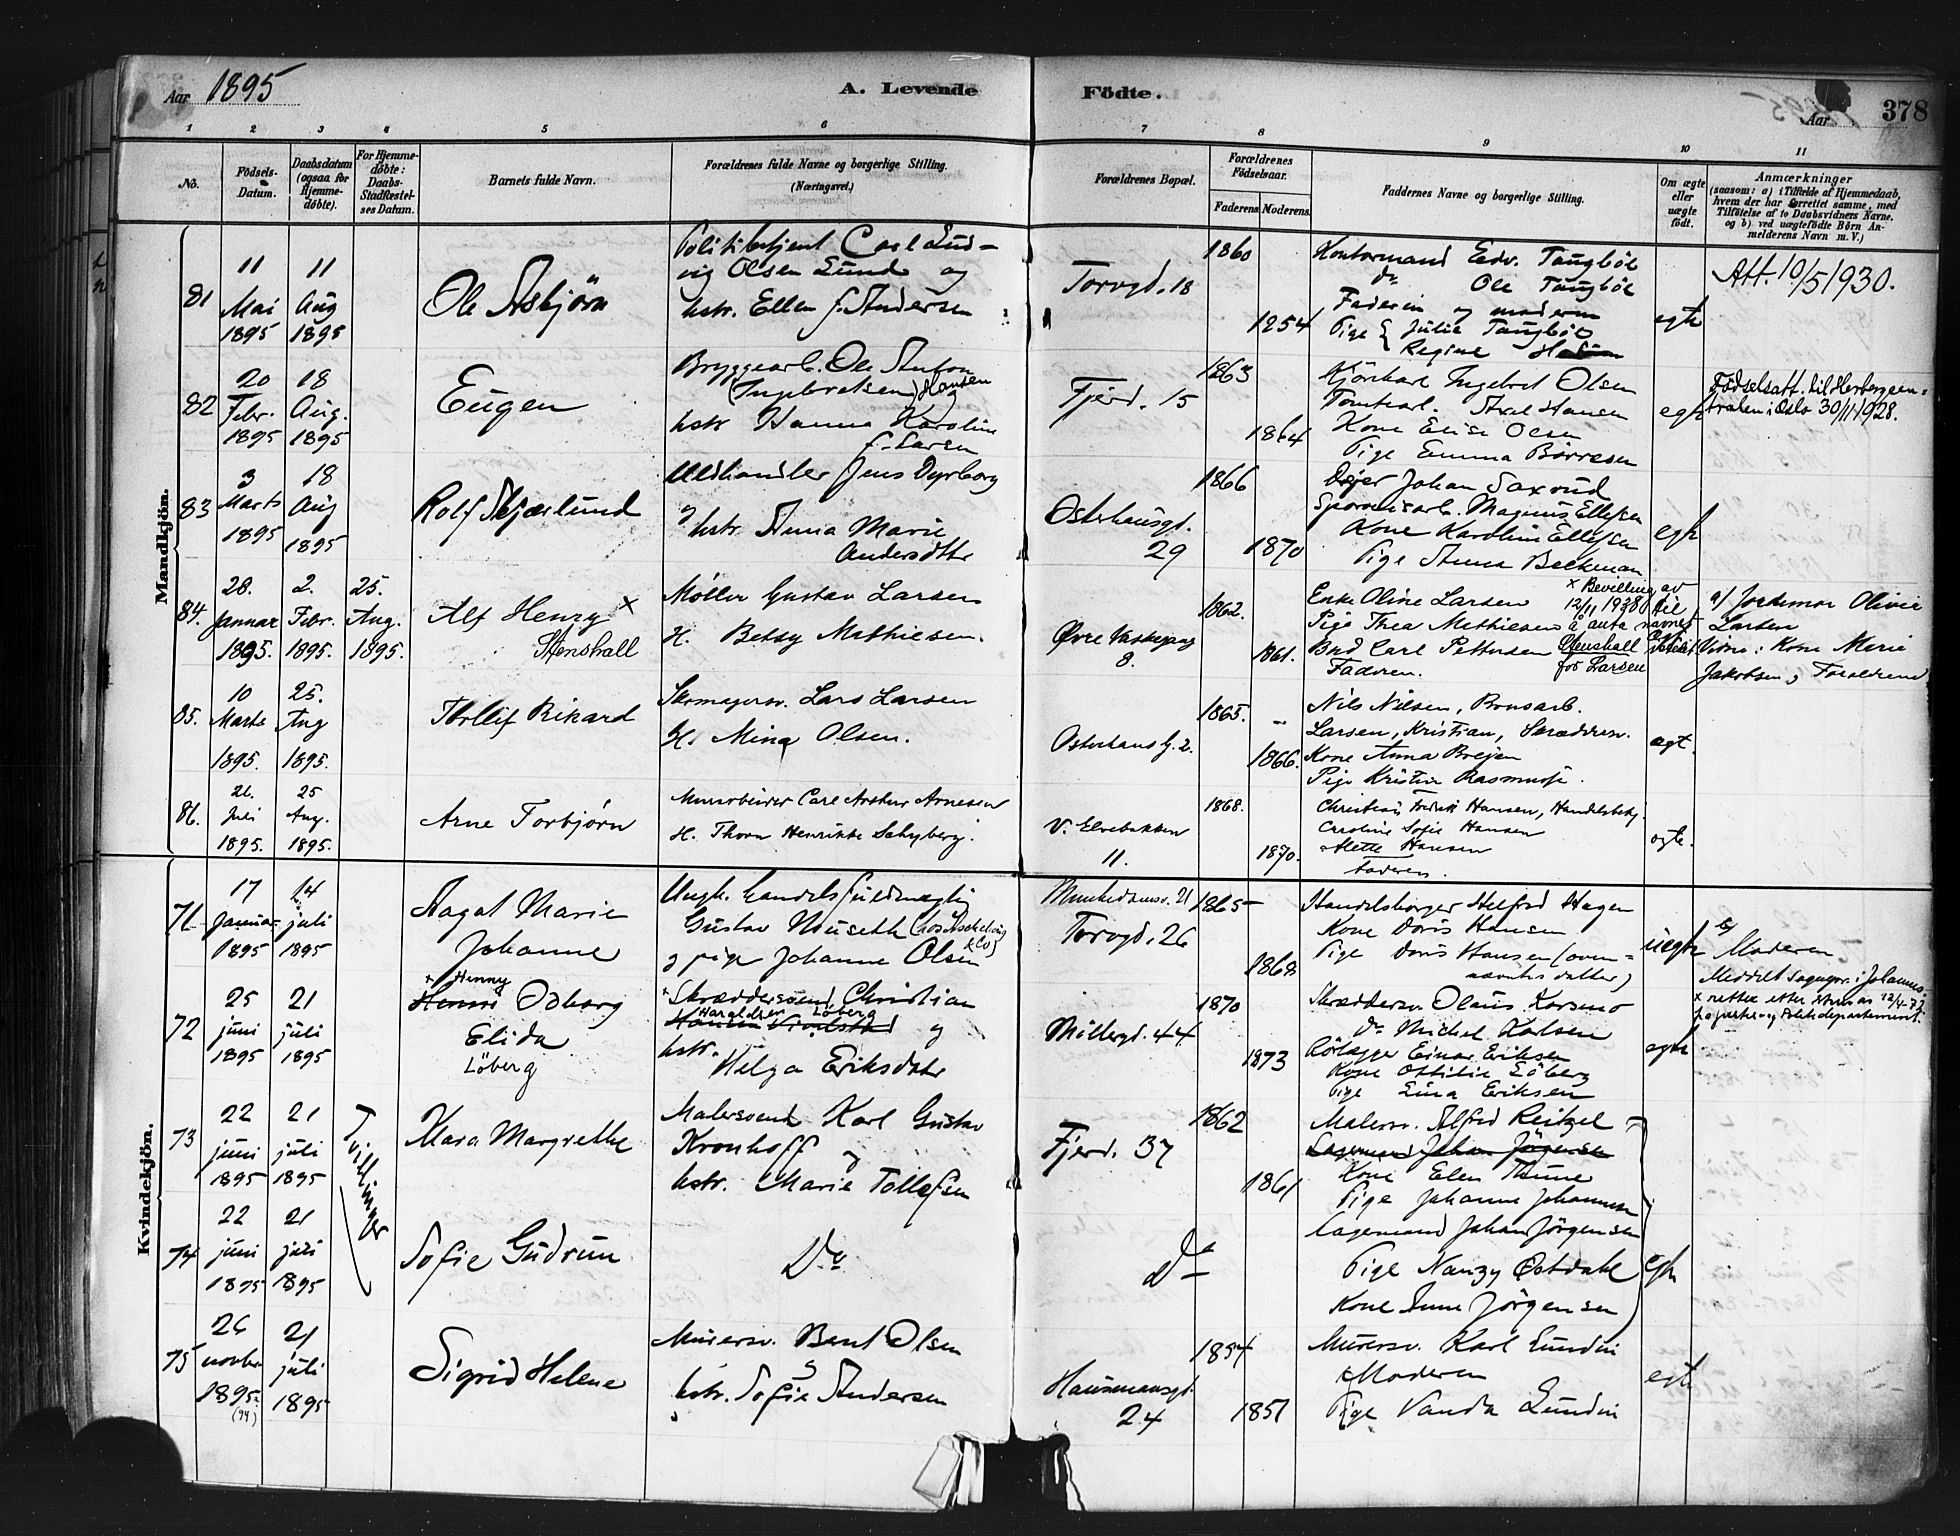 Aar 1895
A. Levende Födte.
Aar 378
1 2 3 4 5 6 7 8 9 10 11
No.
Födsels-Datum.
Daabsdatum (ogsaa for Hjemme-döbte).
For Hjemme-döbte: Daabs-Stadfæstel-ses Datum.
Barnets fulde Navn.
Forældrenes fulde Navne og borgerlige Stilling.
(Næringsvei.)
Forældrenes Bopæl.
Forældrenes Födselsaar.
Faderens. Moderens.
Faddernes Navne og borgerlige Stilling.
Om ægte eller uægte födt.
Anmærkninger
(saasom: a) i Tilfælde af Hjemmedaab, hvem der har forrettet samme, med Tilföielse af to Daabsvidners Navne, og b) ved uægtefödte Börn An-melderens Navn m. V.)
Mandkjön.
81
11 Mai 1895
11 Aug 1895
Ole Asbjörn
Politibetjent Carl Lud-
vig Olsen Lund og
hstr. Ellen f. Andersen
Torvgd. 18
1860
1854
Kontormand Edv. Taugböl
do Ole Taugböl
Faderen og moderen
Pige Julie Taugböl
Regine
egte
Att. 10/5 1930.
82
20 Febr. 1895
18 Aug. 1895
Eugen
Bryggearb. Ole Anton
(Ingebretsen) Hansen
hstr Hanna Karoline
f. Larsen
Fjerd. 15
1863
1864
Ingebret Olsen
Axel Hansen
Kone Elise Olsen
Pige Emma Börresen
egte
Födselsatt. til Herbergcen-
tralen i Oslo 30/11 1928.
83
3 Marts 1895
18 Aug 1895
Rolf Skjærlund
Vedhandler Jens Dyrborg
hstr. Anna Marie
Andersdtr
Osterhausgd.
29
1866
1870
Johan Saxrud
Sporveisarb. Magnus Ellefsen
Kone Karoline Ellefsen
Pige Anna Beckman
egte
84.
28. Januar 1895.
2. Febr. 1895.
25. Aug. 1895.
Alf Henry x
Stenshall
Møller Gustav Larsen
H. Betsy Mathiesen.
Øvre Vaskegang
8.
1862.
1861.
Enke Oline Larsen
Pige Thea Mathiesen
Bud Carl Pettersen
Faderen.
x Bevilling av
12/11 1938 til
å anta navnet
Stenshall
for Larsen
af Jordemor Olivie
Larsen
Vidne: Kone Marie
Jakobsen, Forældrene
85.
10 Marts 1895.
25. Aug 1895.
Thollif Rikard
Skomagersv. Lars Larsen
H. Mina Olsen.
Osterhausg. 2.
1865.
1866.
Nils Nilsen, Brusarb.
Larsen, Kristian, Skrædderv.
Kone Anna Breien
Pige Kristine Rasmuss.
ægt.
86.
21. Juli 1895.
25 Aug. 1895.
Arne Torbjörn
Murarbeider Carl Arthur Arnesen
H. Thora Henrikke Schyberg.
V. Elvebakken
11.
1868.
1870.
Christian Fredrik Hansen, Handelsbetj.
Caroline Sofie Hansen
Alette Hansen
Faderen.
ægte.
Kvindekjön.
71
17 Januar 1895
14 juli 1895
Aagot Marie
Johanne
Ungk. handelsfuldmægtig
Gustav Museth (hos Aschehoug & Co)
og pige Johanne Olsen
Munkedamsv. 21
Torvgd. 26
1865
1868
Handelsborger Helfred Hagen
Kone Doris Hansen
Pige Doris Hansen (oven-
nævntes datter)
uegte
Moderen
72
25 juni 1895
21 juli 1895
x Henny
Henni Odborg
Elida
Löberg
x Skræddersvend Christian
Haraldsen Löberg
og
hstr. Helga Eriksdatr
Möllergd. 44
1870
1873
Skræddersv. Olaus Korsmo
do Michel Karlsen
Rörlægger Einar Eriksen
Kone Ottilie Löberg
Pige Lina Eriksen
egte
x rettet efter
73
22 juni 1895
21 juli 1895
Tvillinger
Mara Margrethe
Malersvend Karl Gustav
Kronhoff og
hstr. Marie Tollefsen
Fjerd. 37
1862
1861
Malersv. Alfred Reitzel
Lagermand Johan Jörgensen
Kone Elen Thune
Pige Johanne Johannesen
Lagermand Johan Jörgensen
74
22 juni 1895
21 juli 1895
Sofie Gudrun
Do
Do
Pige Nanzy Østdahl
Kone Anne Jörgensen
egte
75
26 novbr 1895 (94)
21 juli 1895
Sigrid Helene
Murersv. Bent Olsen
hstr. Sofie Andersen
Hausmannsgd.
24
1854
1851
Murersv. Karl Lundin
Moderen
Pige Vanda Lundin
egte